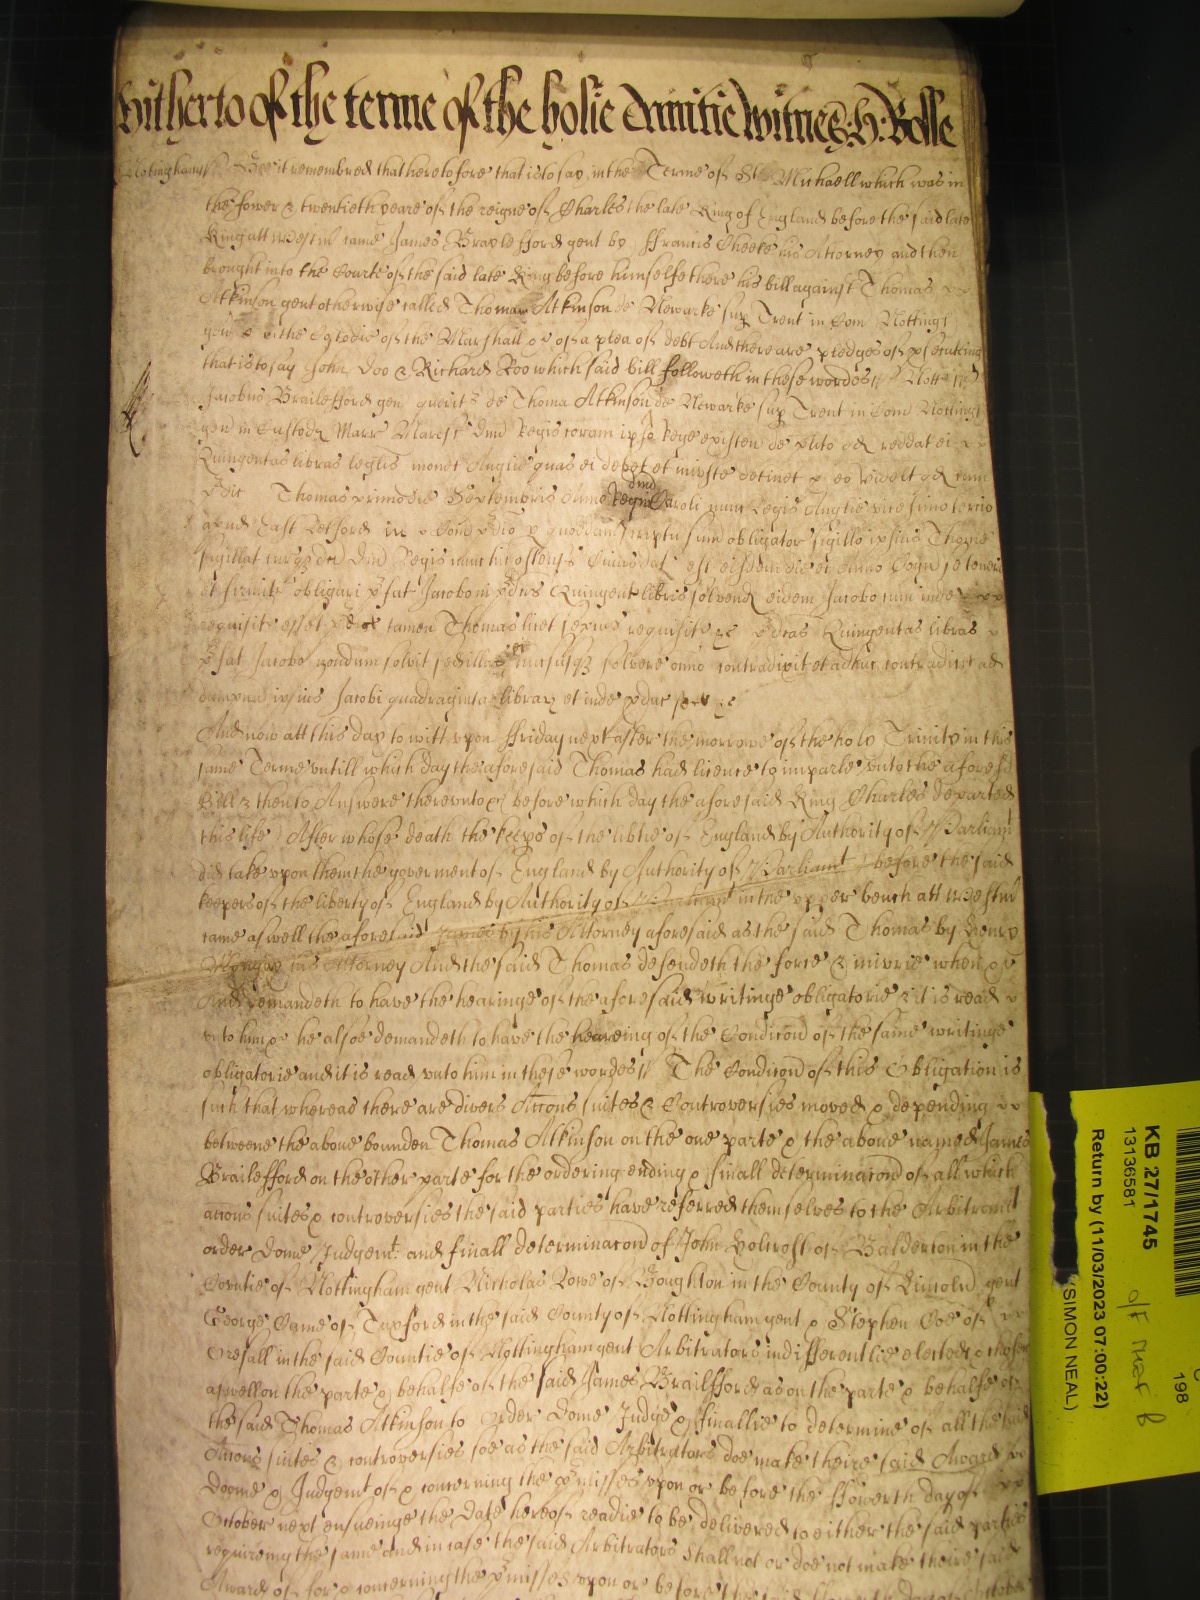 hitherto of the terme of the holie Trinitie witnes: H: Rolle
Bee it remembred that heretofore that is to say in the Terme of St Michaell which was in
the fower & twentieth yeare of the reigne of Charles the late King of England before the said late
King att came James Braylesfford gent by ffrancis Cheeke his Attorney and then
brought into the Courte of the said late King before himselfe there his bill against Thomas
Atkinson gent otherwise called Thomas Atkinson de Newarke sup Trent in Com
in the Custodie of the Marshall of a plea of debt And there are pledges of
that is to say John Doo & Richard Roo which said bill followeth in these wordes
Jacobus Brailesfford gen de Thoma Atkinson de Newarke sup Trent in Com
gen in Custod Marr Maresc Dni Regis coram ipso Rege existen de plito qd reddat ei
Quingentas libras leglis monet Anglie quas ei debet et iniuste detinet
Thomas primo die Septembris Anno Regni dni Caroli nunc Regis Anglie vicesimo tercio
apud East Retford in Com p quoddam scriptu suu obligator sigillo ipsius Thome
sigillat Dni Regis nunc hic ostens Cuius dat est eisdem die et anno Cogn se teneri
et firmit obligari Jacobo in Quingent libris solvend eidem Jacobo cum inde
requisit esset tamen Thomas licet sepius requisit Quingentas libras
Jacobo nondum solvit sed ill ei solvere omno contradixit et adhuc contradicit ad
dampnu ipsius Jacobi quadraginta librar et inde
And now att this day to witt vpon ffriday next after the morrowe of the holy Trinity in this
same Terme vntill which day the aforesaid Thomas had licence to imparle vnto the aforesd
Bill & then to Answere therevnto before which day the aforesaid King Charles departed
this life After whose death the keeps of the libtie of England by Authority of Parliamt
did take vpon them the goverment of England by Authority of Parliamt before the said
keepers of the liberty of England by Authority of in the vpper bench att Westm
came aswell the aforesaid James by his Attorney aforesaid as the said Thomas by Henry
his Attorney And the said Thomas defendeth the force & iniurie when
And demandeth to have the hearinge of the aforesaid writinge obligatorie & it is read
vnto him he alsoe demandeth to have the heareing of the Condicon of the same writinge
obligatorie and it is read vnto him in these wordes The Condicon of this Obligation is
such that whereas there are divers Accons suites & Controversies moved & depending
betweene the aboue bounden Thomas Atkinson on the one parte & the aboue named James
Brailesfford on the other parte for the ordering ending & finall determinacon of all which
accons suites & controversies the said parties have referred themselves to the Arbitremt
order Dome Judgemt and finall determinacon of John of Balderton in the
Countie of Nottingham gent Nicholas Lowe of Boughton in the County of Lincoln gent
George of Tuxford in the said County of Nottingham gent & Stephen Coe of
in the said Countie of Nottingham gent Arbitrators indifferentlie elected & chosen
aswell on the parte & behalfe of the said James Brailsfford as on the parte & behalfe of
the said Thomas Atkinson to Order Dome Judge & finallie to determine of all the said
Accons suites & controversies soe as the said Arbitrators doe make theire said Award
Doome & Judgemt of & concerning the pmisses vpon or before the ffowerth day of
October next ensueinge the Date hereof readie to be delivered to either the said parties
requireing the same And in case the said Arbitrators shall not or doe not make theire said
Award of for & concerning the pmisses vpon or before the said day of October
KB 27/1745
13136581
Return by (11/03/2023 07:00:22)
(SIMON NEAL)
198